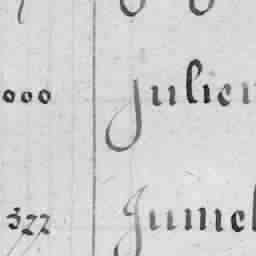 000 Julien
322 Jumel